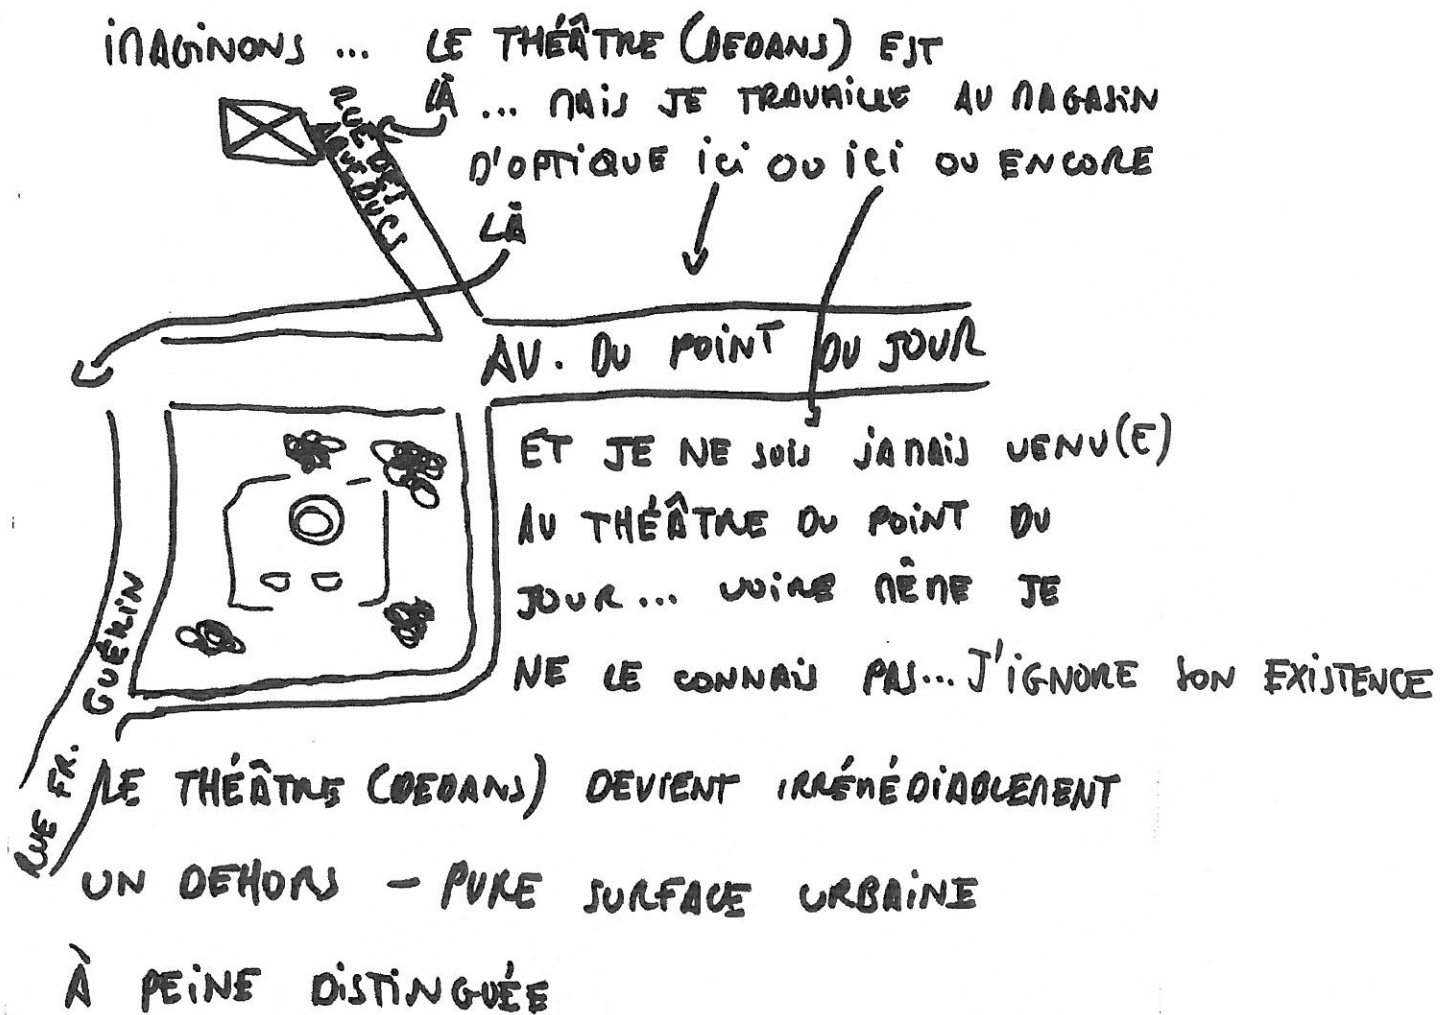 IMAGINONS ... LE THÉÂTRE (DEDANS) EST
LÀ ... MAIS JE TRAVAILLE AU MAGASIN
D'OPTIQUE ICI OU ICI OU ENCORE
LÀ
RUE DES
AQUEDUCS
AV. DU POINT DU JOUR
ET JE NE SUIS JAMAIS VENU(E)
AU THÉÂTRE DU POINT DU
JOUR... VOIRE MÊME JE
NE LE CONNAIS PAS... J'IGNORE SON EXISTENCE
RUE FR. GUÉRIN
LE THÉÂTRE (DEDANS) DEVIENT IRRÉMÉDIABLEMENT
UN DEHORS – PURE SURFACE URBAINE
À PEINE DISTINGUÉE